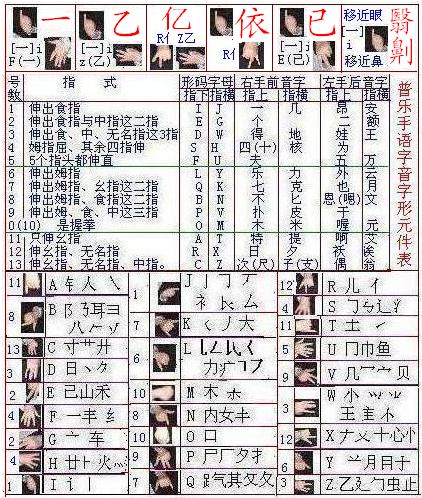 一 乙 亿 依 已 翳 劓
[一]i
F(一)
[一]i
z(乙)
R亻 Z乙
R亻
[一]i
E(己)
移近眼
[一]
i
移近鼻
普乐手语字音字形元件表
号数 指 式 形码字母 右手前音字 左手后音字
指下 指横 指上 指横 指上 指横
1 伸出食指 I J 一 几 昂 安
2 伸出食指与中指这二指 E G 个 二 额
3 伸出食、中、无名指这3指 D W 得 地 娃 王
4 姆指屈、其余四指伸 S H 四(十) 核 为
5 5个指头都伸直 F U 夫 五 万
6 伸出姆指 L Y 乐 力 外 云
7 伸出姆指、幺指这二指 Q K 七 克 也 月
8 伸出姆指、食指这二指 B N 不 匕 恩(嗯) 文
9 伸出姆、食、中这三指 P V 扑 皮 于
0(10) 是握拳 O M 木 米 喔 元
11 只伸幺指 A T 特 提 啊 艾
12 伸幺指、无名指 R X 日 夕 袄 埃
13 伸幺指、无名指、中指。 C Z 次(尺) 子(支) 偶 翁
11 A 车 人 乀
8 B 阝 耳 彐 八
13 C 寸 艹 廾
3 D 日 丶
2 E 已 山 禾
4 F 一 丰 纟
2 G 亠 车
4 H 廿 卜 火 灬
1 I 讠 丨
1 J 亅 冂 礻 厶
7 K 大
6 L 力 疒
10 M 木
8 N 内 女
10 O 口
9 P 尸 厂 夕 扌
7 Q 气 其 犬
12 R 儿 亻
4 S 辶 氵
11 T 土
5 U 冂 巾 鱼
9 V 几 宀 贝
3 W 小 王 主
12 X 十 心 忄
6 Y 月 目
3 Z 乙 廴 勹 虫 止